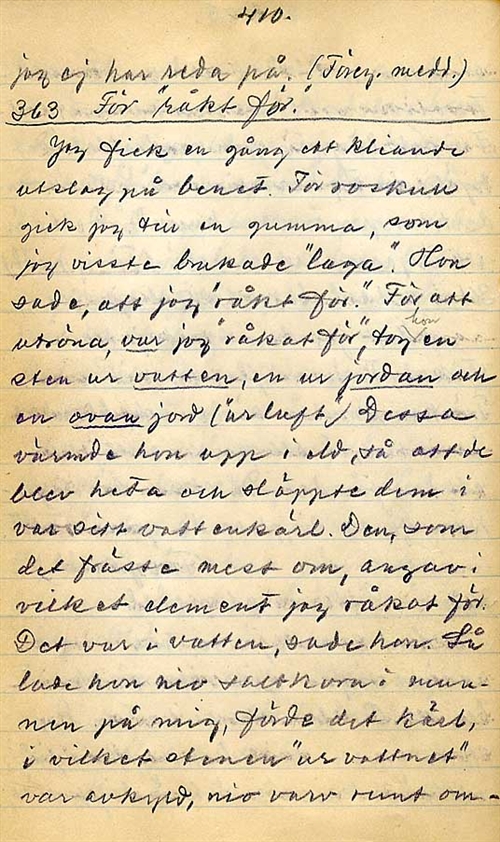 410.
jag ej har reda på. (Föreg. medd.)
363 För "råkt för."
Jag fick en gång ett kliande
utslag på benet. För roskull
gick jag till en gumma, som
jag visste brukade "laga". Hon
sade, att jag "råkt för." För att
utröna, var jag "råkat för", tog hon en
sten ur vatten, en ur jordan och
en ovan jord ("ur luft") Dessa
värmde hon upp i eld, så att de
blev heta och släppte dem i
var sitt vattenkärl. Den, som
det fräste mest om, angav i
vilket element jag råkat för.
Det var i vatten, sade hon. Så
lade hon nio saltkorn i mun-
nen på mig, förde det kärl,
i vilket stenen "ur vattnet"
var avkyld, nio varv runt om-